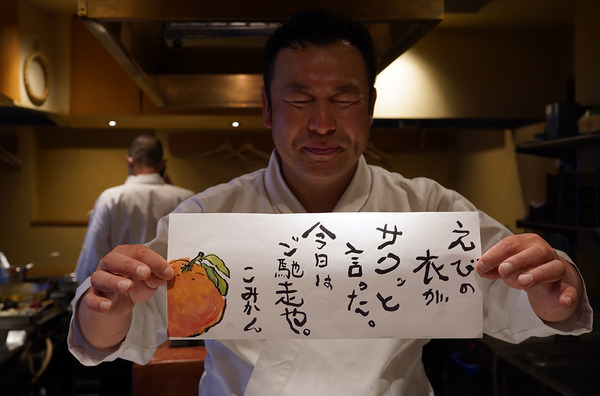 えびの
衣が
サクッと
言った。
今日は
ご馳走や。
こみかん